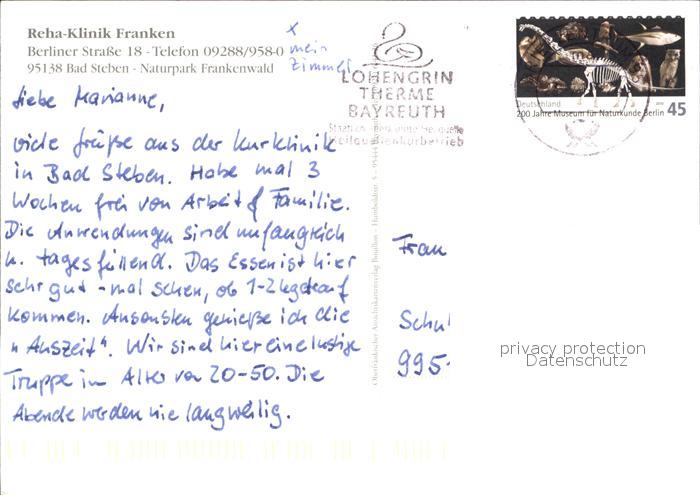 Reha-Klinik Franken
Berliner Straße 18 - Telefon 09288/958-0
95138 Bad Steben - Naturpark Frankenwald
x
mein
Zimmer
LOHENGRIN
THERME
BAYREUTH
Staatlich anerkannte Heilquelle
Heilquellenkurbetrieb
Deutschland
200 Jahre Museum für Naturkunde Berlin
45
Liebe Marianne,
viele Grüße aus der Kurklinik
in Bad Steben. Habe mal 3
Wochen frei von Arbeit & Familie.
Die Anwendungen sind umfangreich
u. tagesfüllend. Das Essen ist hier
sehr gut - mal sehen, ob 1-2 kg drauf
kommen. Ansonsten genieße ich die
"Auszeit". Wir sind hier eine lustige
Truppe im Alter von 20-50. Die
Abende werden nie langweilig.
Frau
Schu
995
privacy protection
Datenschutz